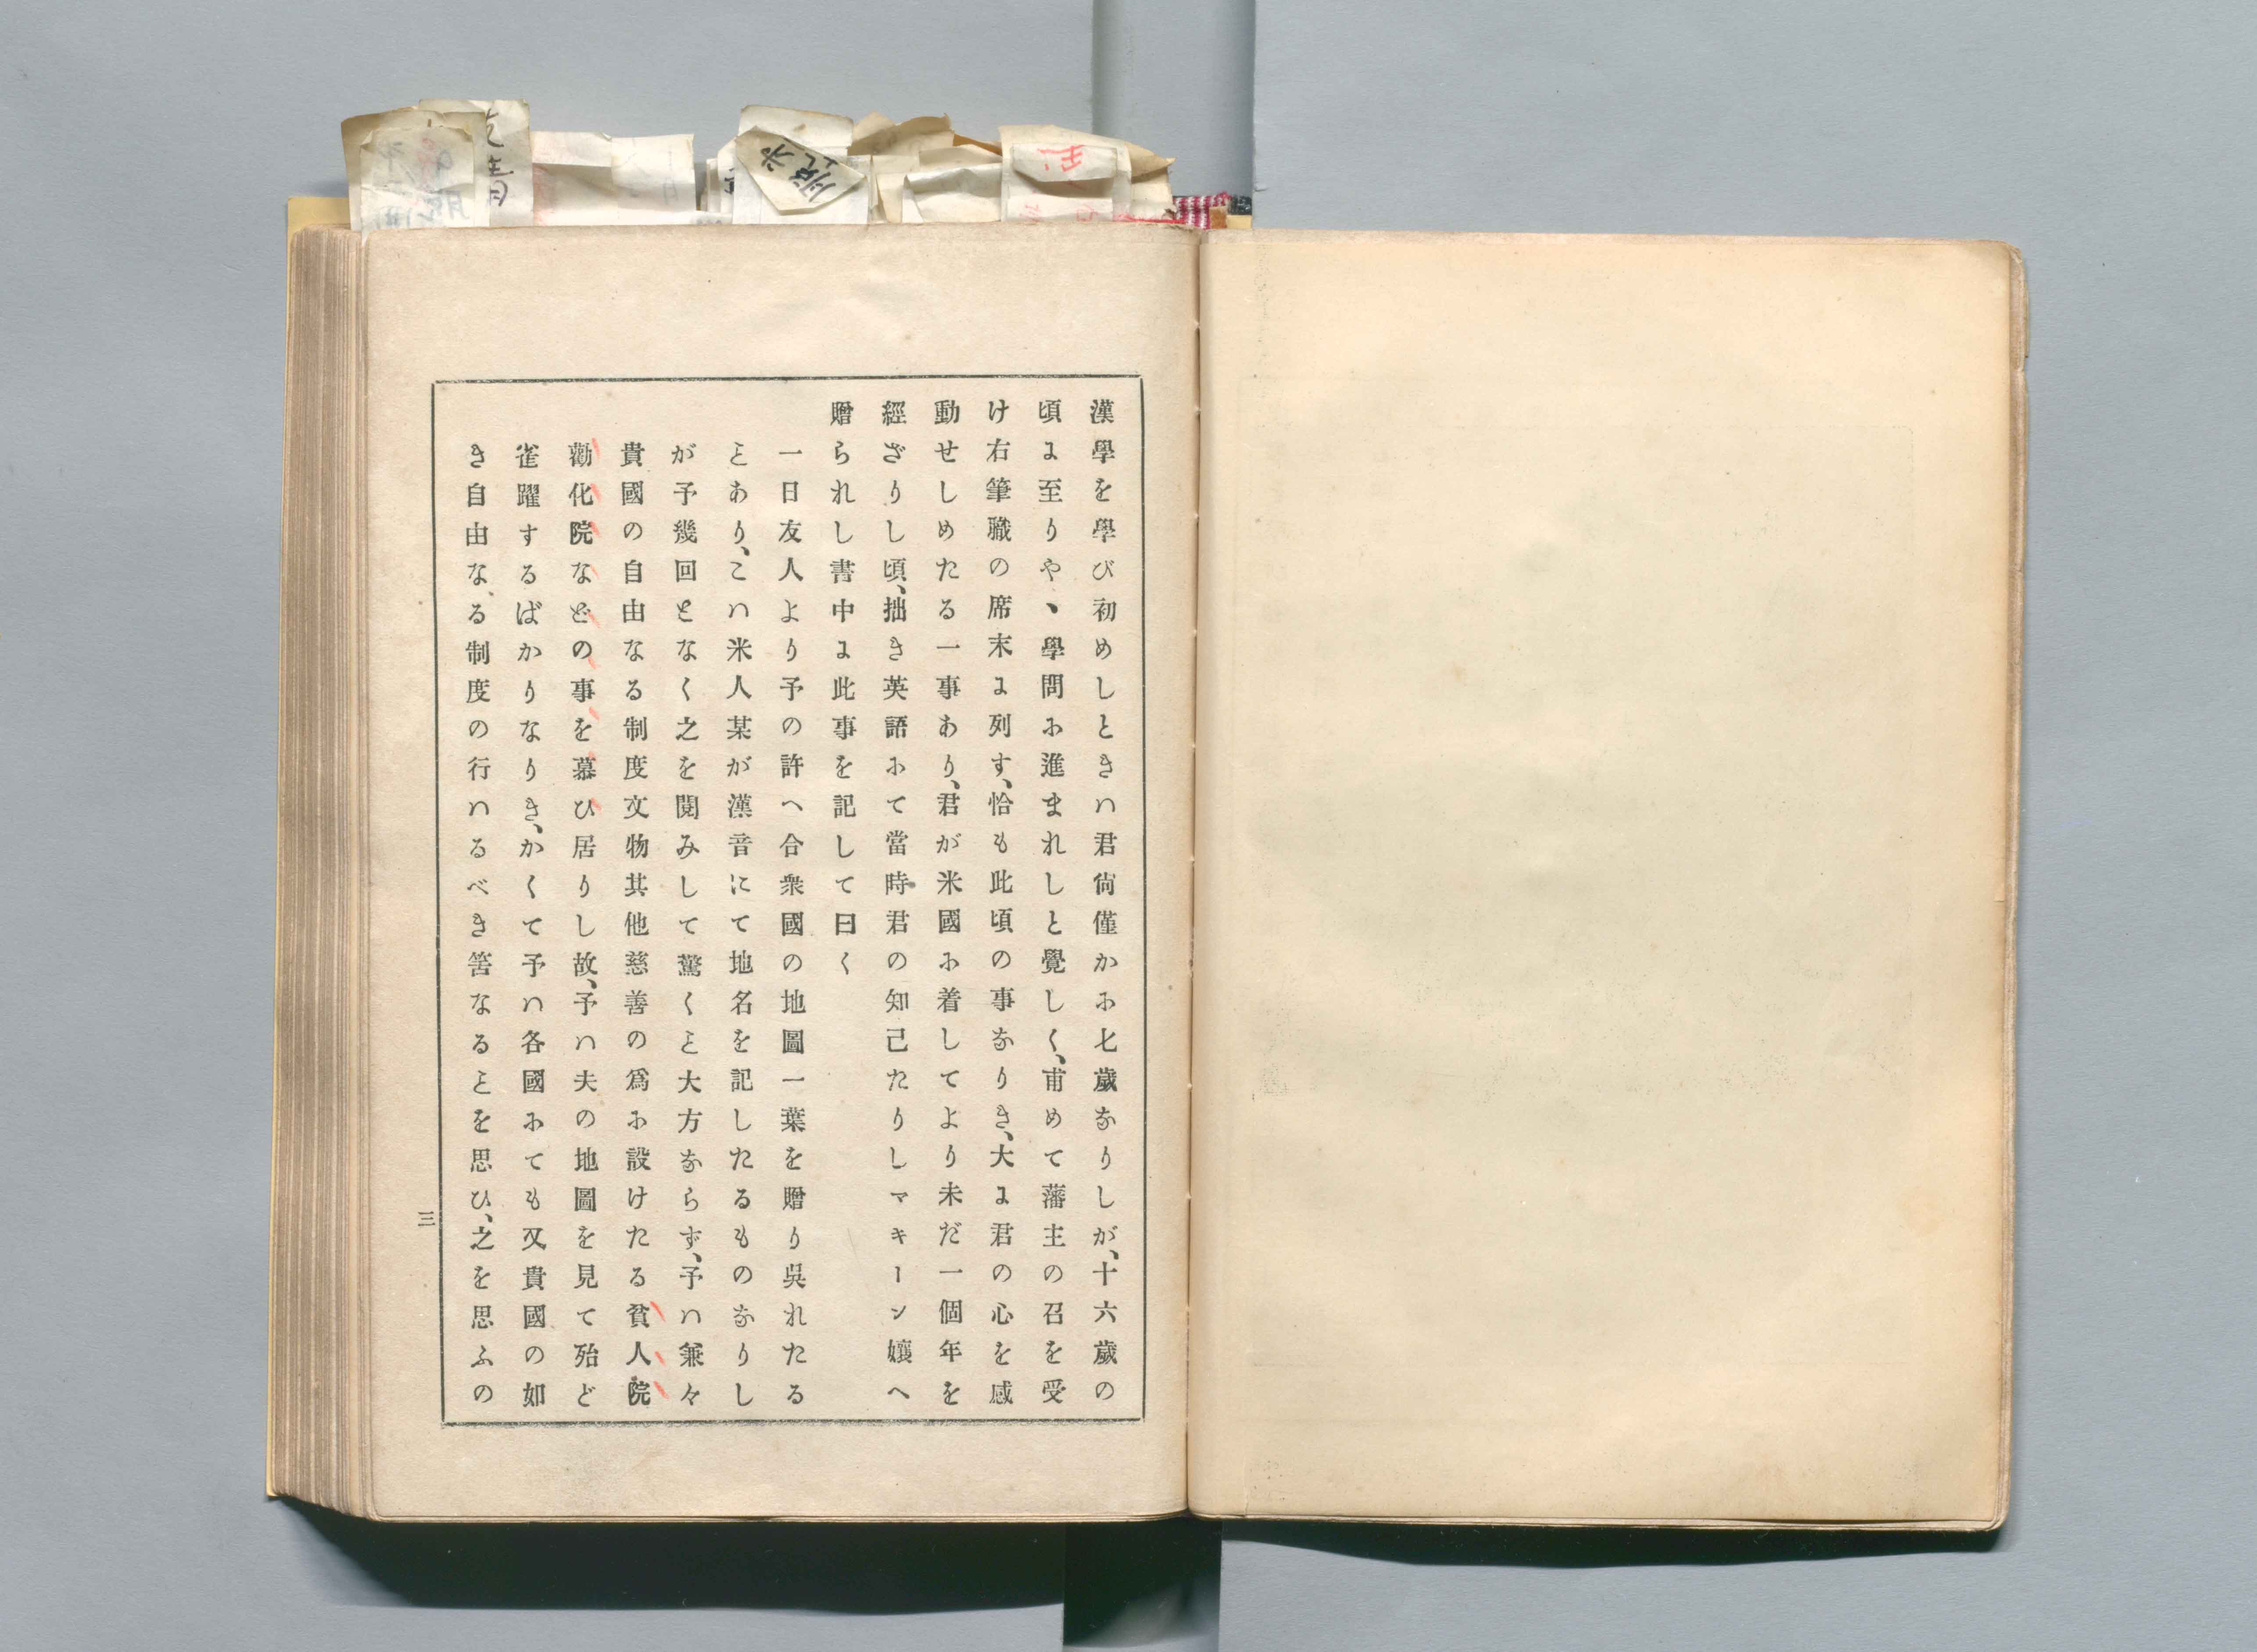 漢學を學び初めしときハ君尙僅かに七歲なりしが、十六歲の
頃に至りやゝ學問に進まれしと覺しく、甫めて藩主の召を受
け右筆職の席末に列す、恰も此頃の事なりき、大に君の心を感
動せしめたる一事あり、君が米國に着してより未だ一個年を
經ざりし頃、拙き英語にて當時君の知己たりしマキーン孃へ
贈られし書中に此事を記して曰く
一日友人より予の許へ合衆國の地圖一葉を贈り吳れたる
ことあり、こハ米人某が漢音にて地名を記したるものなりし
が予幾回となく之を閱みして驚くこと大方ならず、予ハ兼々
貴國の自由なる制度文物其他慈善の爲に設けたる貧人院
勸化院などの事を慕ひ居りし故、予ハ夫の地圖を見て殆ど
雀躍するばかりなりき、かくて予ハ各國にても又貴國の如
き自由なる制度の行ハるべき筈なることを思ひ、之を思ふの
三